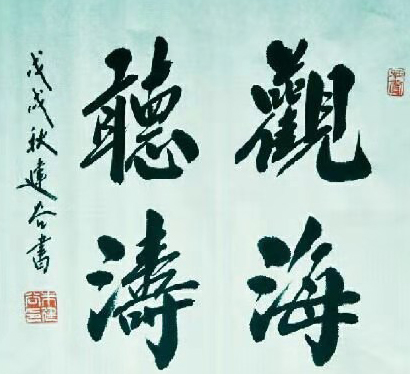 觀海
聽濤
戊戌秋建谷書